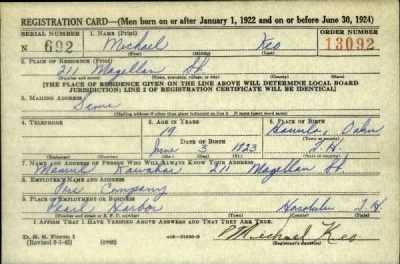 REGISTRATION CARD—(Men born on or after January 1, 1922 and on or before June 30, 1924)
SERIAL NUMBER 1. NAME (Print) ORDER NUMBER
N 692 Michael Keo 13092
(First) (Middle) (Last)
2. PLACE OF RESIDENCE (Print)
211 Magellan St.
(Number and street) (Town, township, village, or city) (County) (State)
[THE PLACE OF RESIDENCE GIVEN ON THE LINE ABOVE WILL DETERMINE LOCAL BOARD
JURISDICTION; LINE 2 OF REGISTRATION CERTIFICATE WILL BE IDENTICAL]
3. MAILING ADDRESS
Same
[Mailing address if other than place indicated on line 2. If same insert word same]
4. TELEPHONE 5. AGE IN YEARS 6. PLACE OF BIRTH
19 Hauula, Oahu
DATE OF BIRTH (Town or county)
June 3 1923 T.H.
(Exchange) (Number) (Mo.) (Day) (Yr.) (State or country)
7. NAME AND ADDRESS OF PERSON WHO WILL ALWAYS KNOW YOUR ADDRESS
Manuel 211 Magellan St.
8. EMPLOYER'S NAME AND ADDRESS
Company
9. PLACE OF EMPLOYMENT OR BUSINESS
Pearl Harbor Honolulu T.H.
(Number and street or R. F. D. number) (Town) (County) (State)
I AFFIRM THAT I HAVE VERIFIED ABOVE ANSWERS AND THAT THEY ARE TRUE.
D. S. S. Form 1
(Revised 6-1-42) (over) Michael Keo
(Registrant's signature)